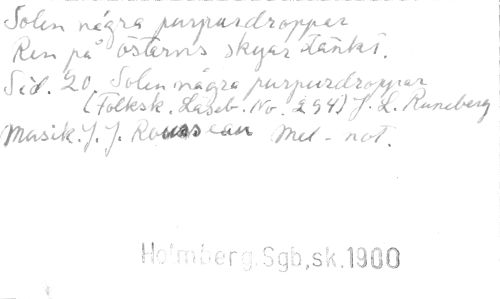 Solen några purpurdroppar
Ren på österns skyar stänkt.
Sid. 20. Solen några purpurdroppar
(Folksk. Läseb. No. 294) J. L. Runeberg
Musik. J. J. Rousseau Mel-not.
Holmberg.Sgb,sk.1900